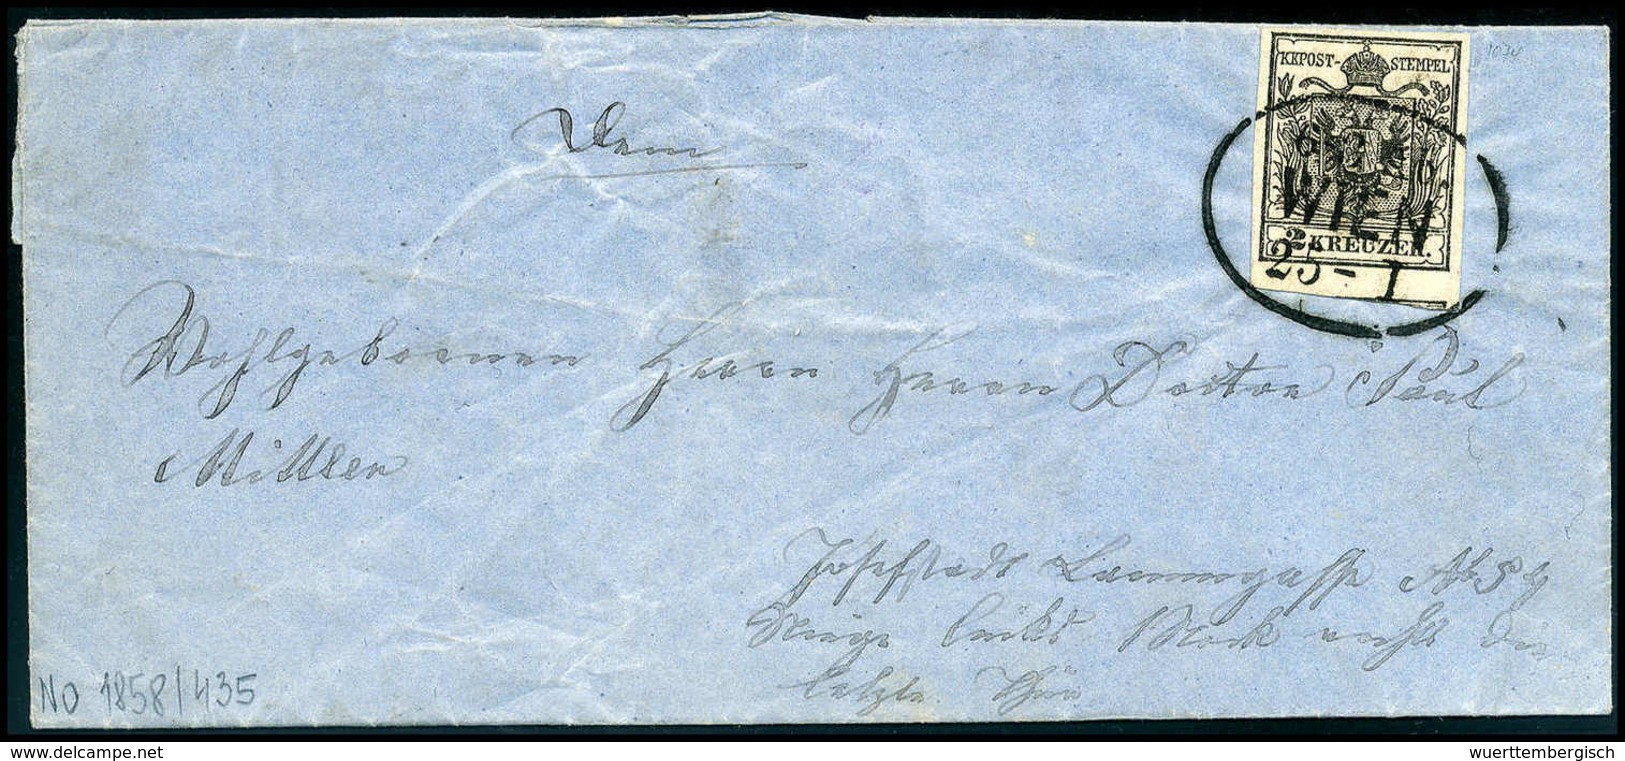 KKPOST-STEMPEL
2 KREUZER.
WIEN
25 - I
Dem
Wohlgebornen Herrn Herrn Doctor Paul
Mittler
Josefstadt Lammgasse
Stiege links Stock rechts die
letzte Thür
NO 1858/435
www.delcampe.net
wuerttembergisch